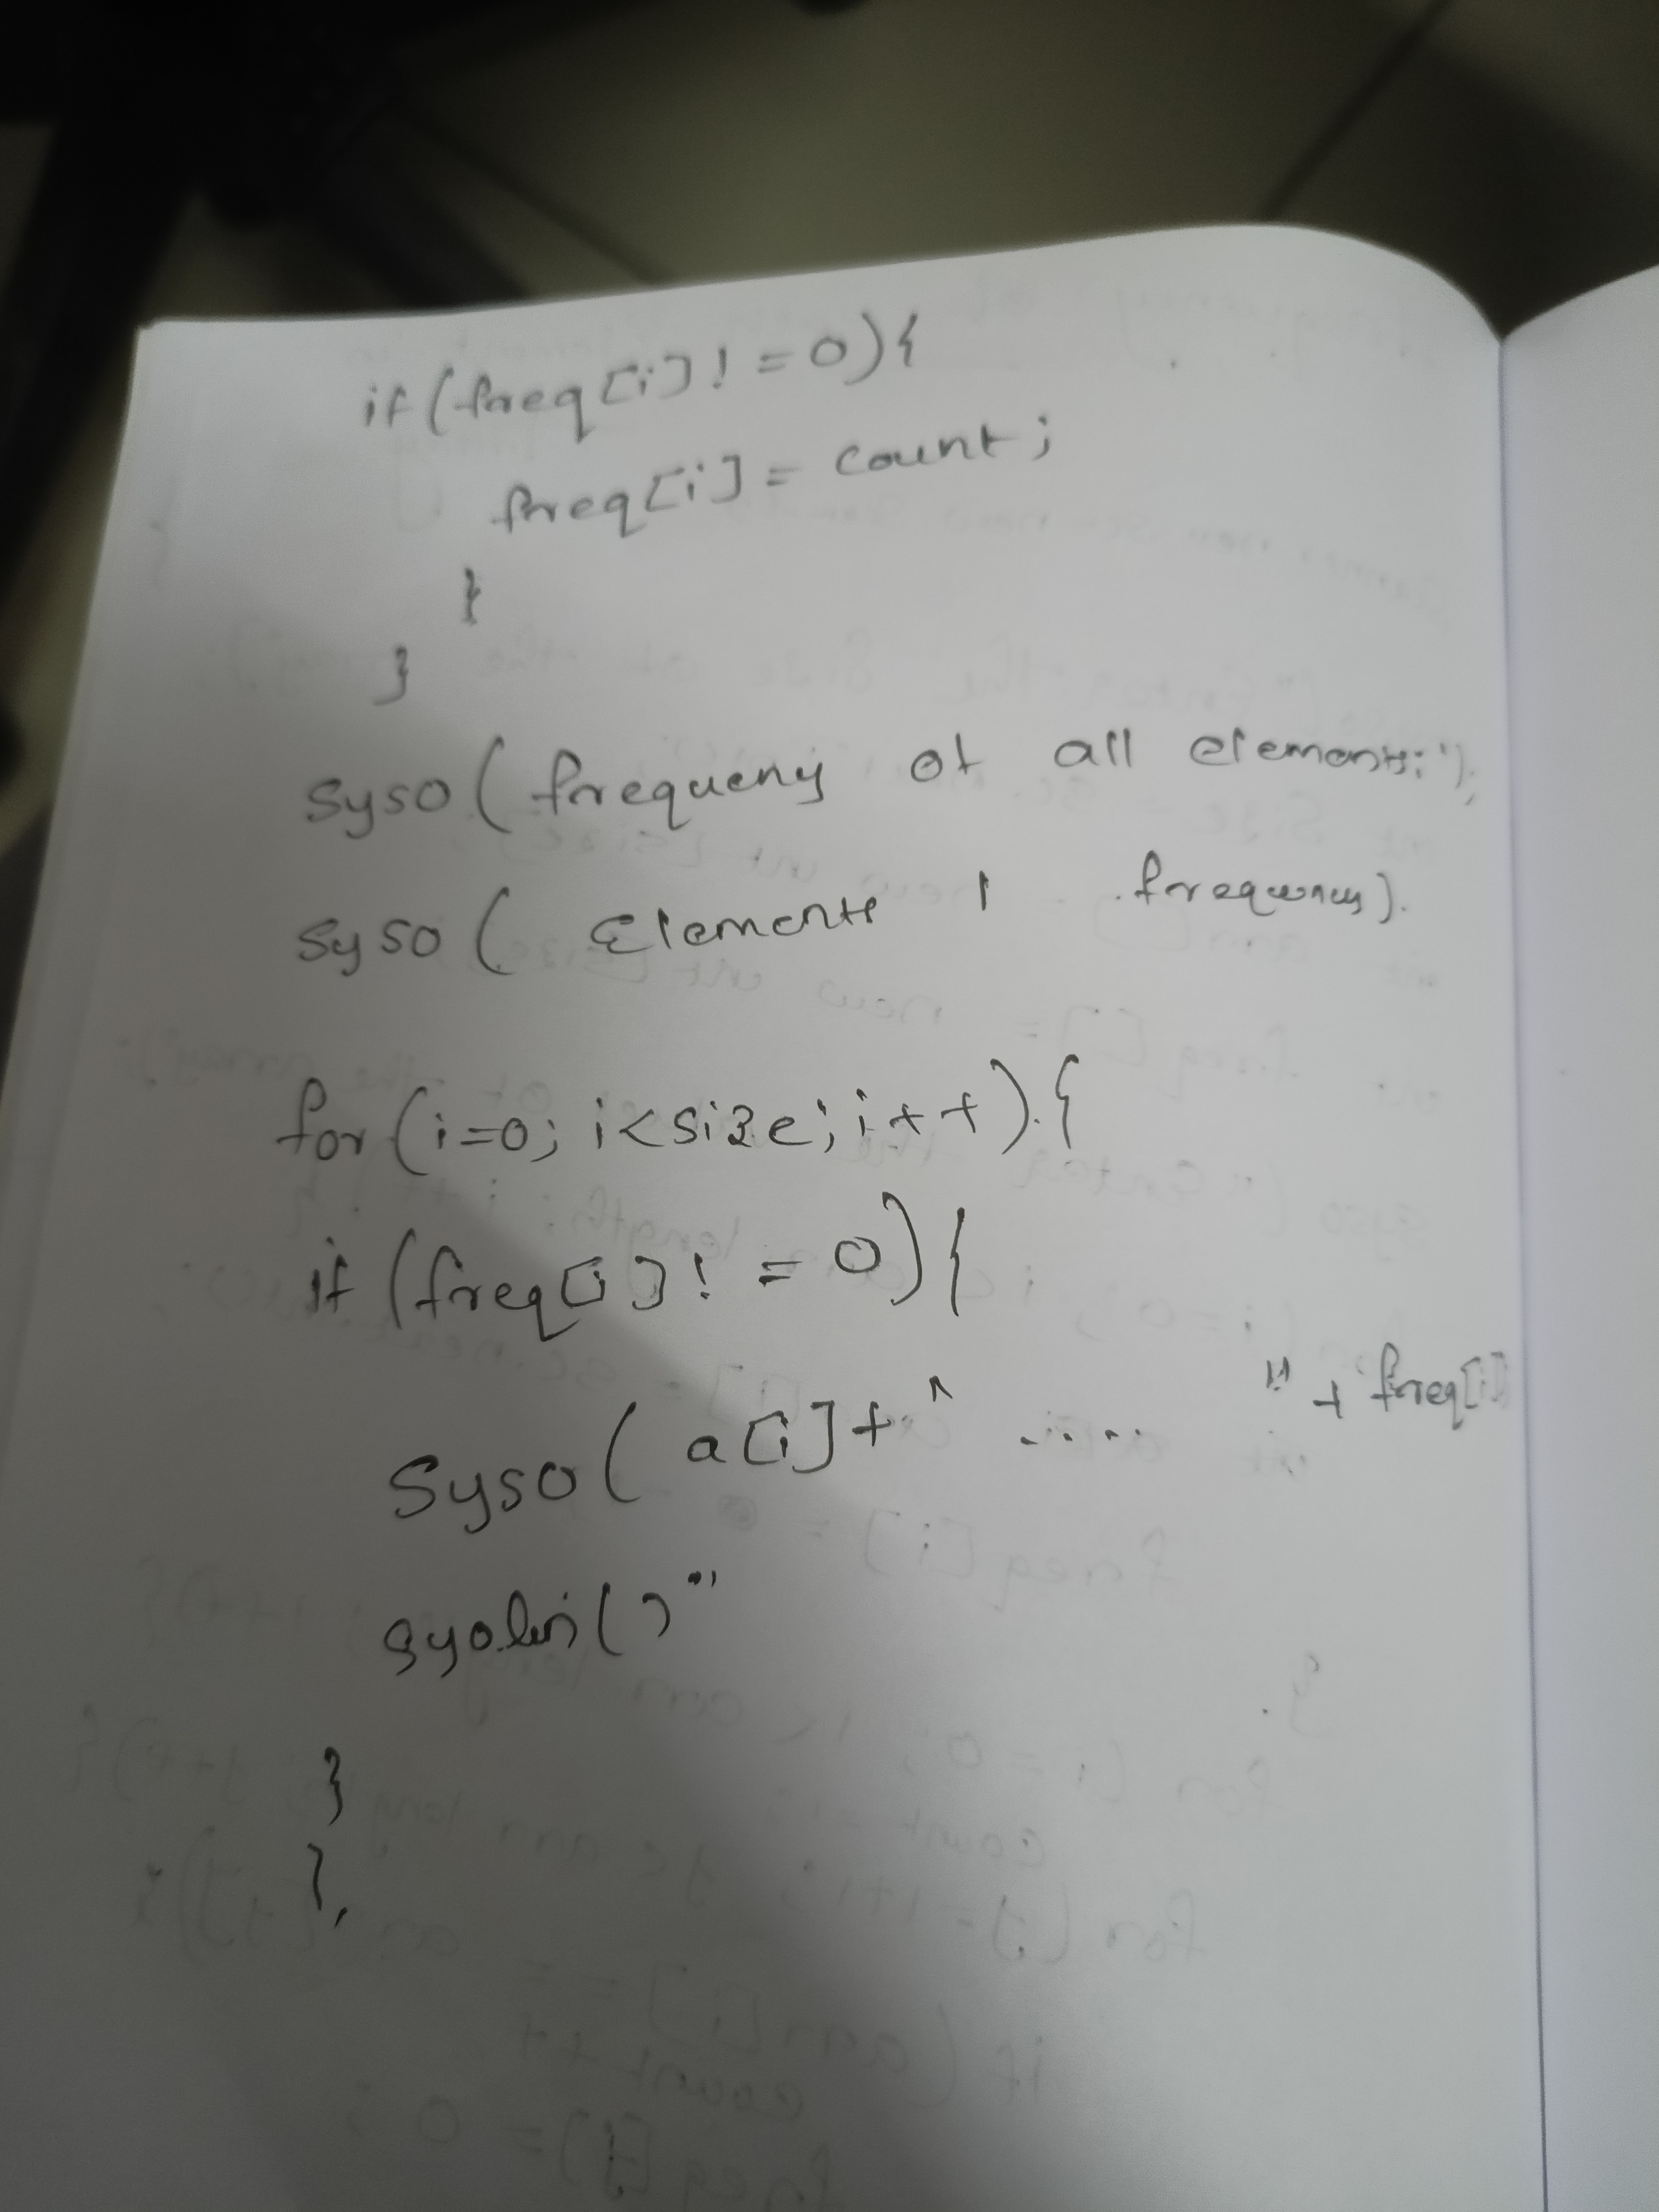 if(freq[i]!=0){
freq[i]= count;
}
}
syso( frequeny of all elements:");
syso( Elements | frequency).
for(i=0; i<size; i++).{
if (freq[i]!=0){
syso( a[i]+" ...." + freq[i]
syoln()"
}
},